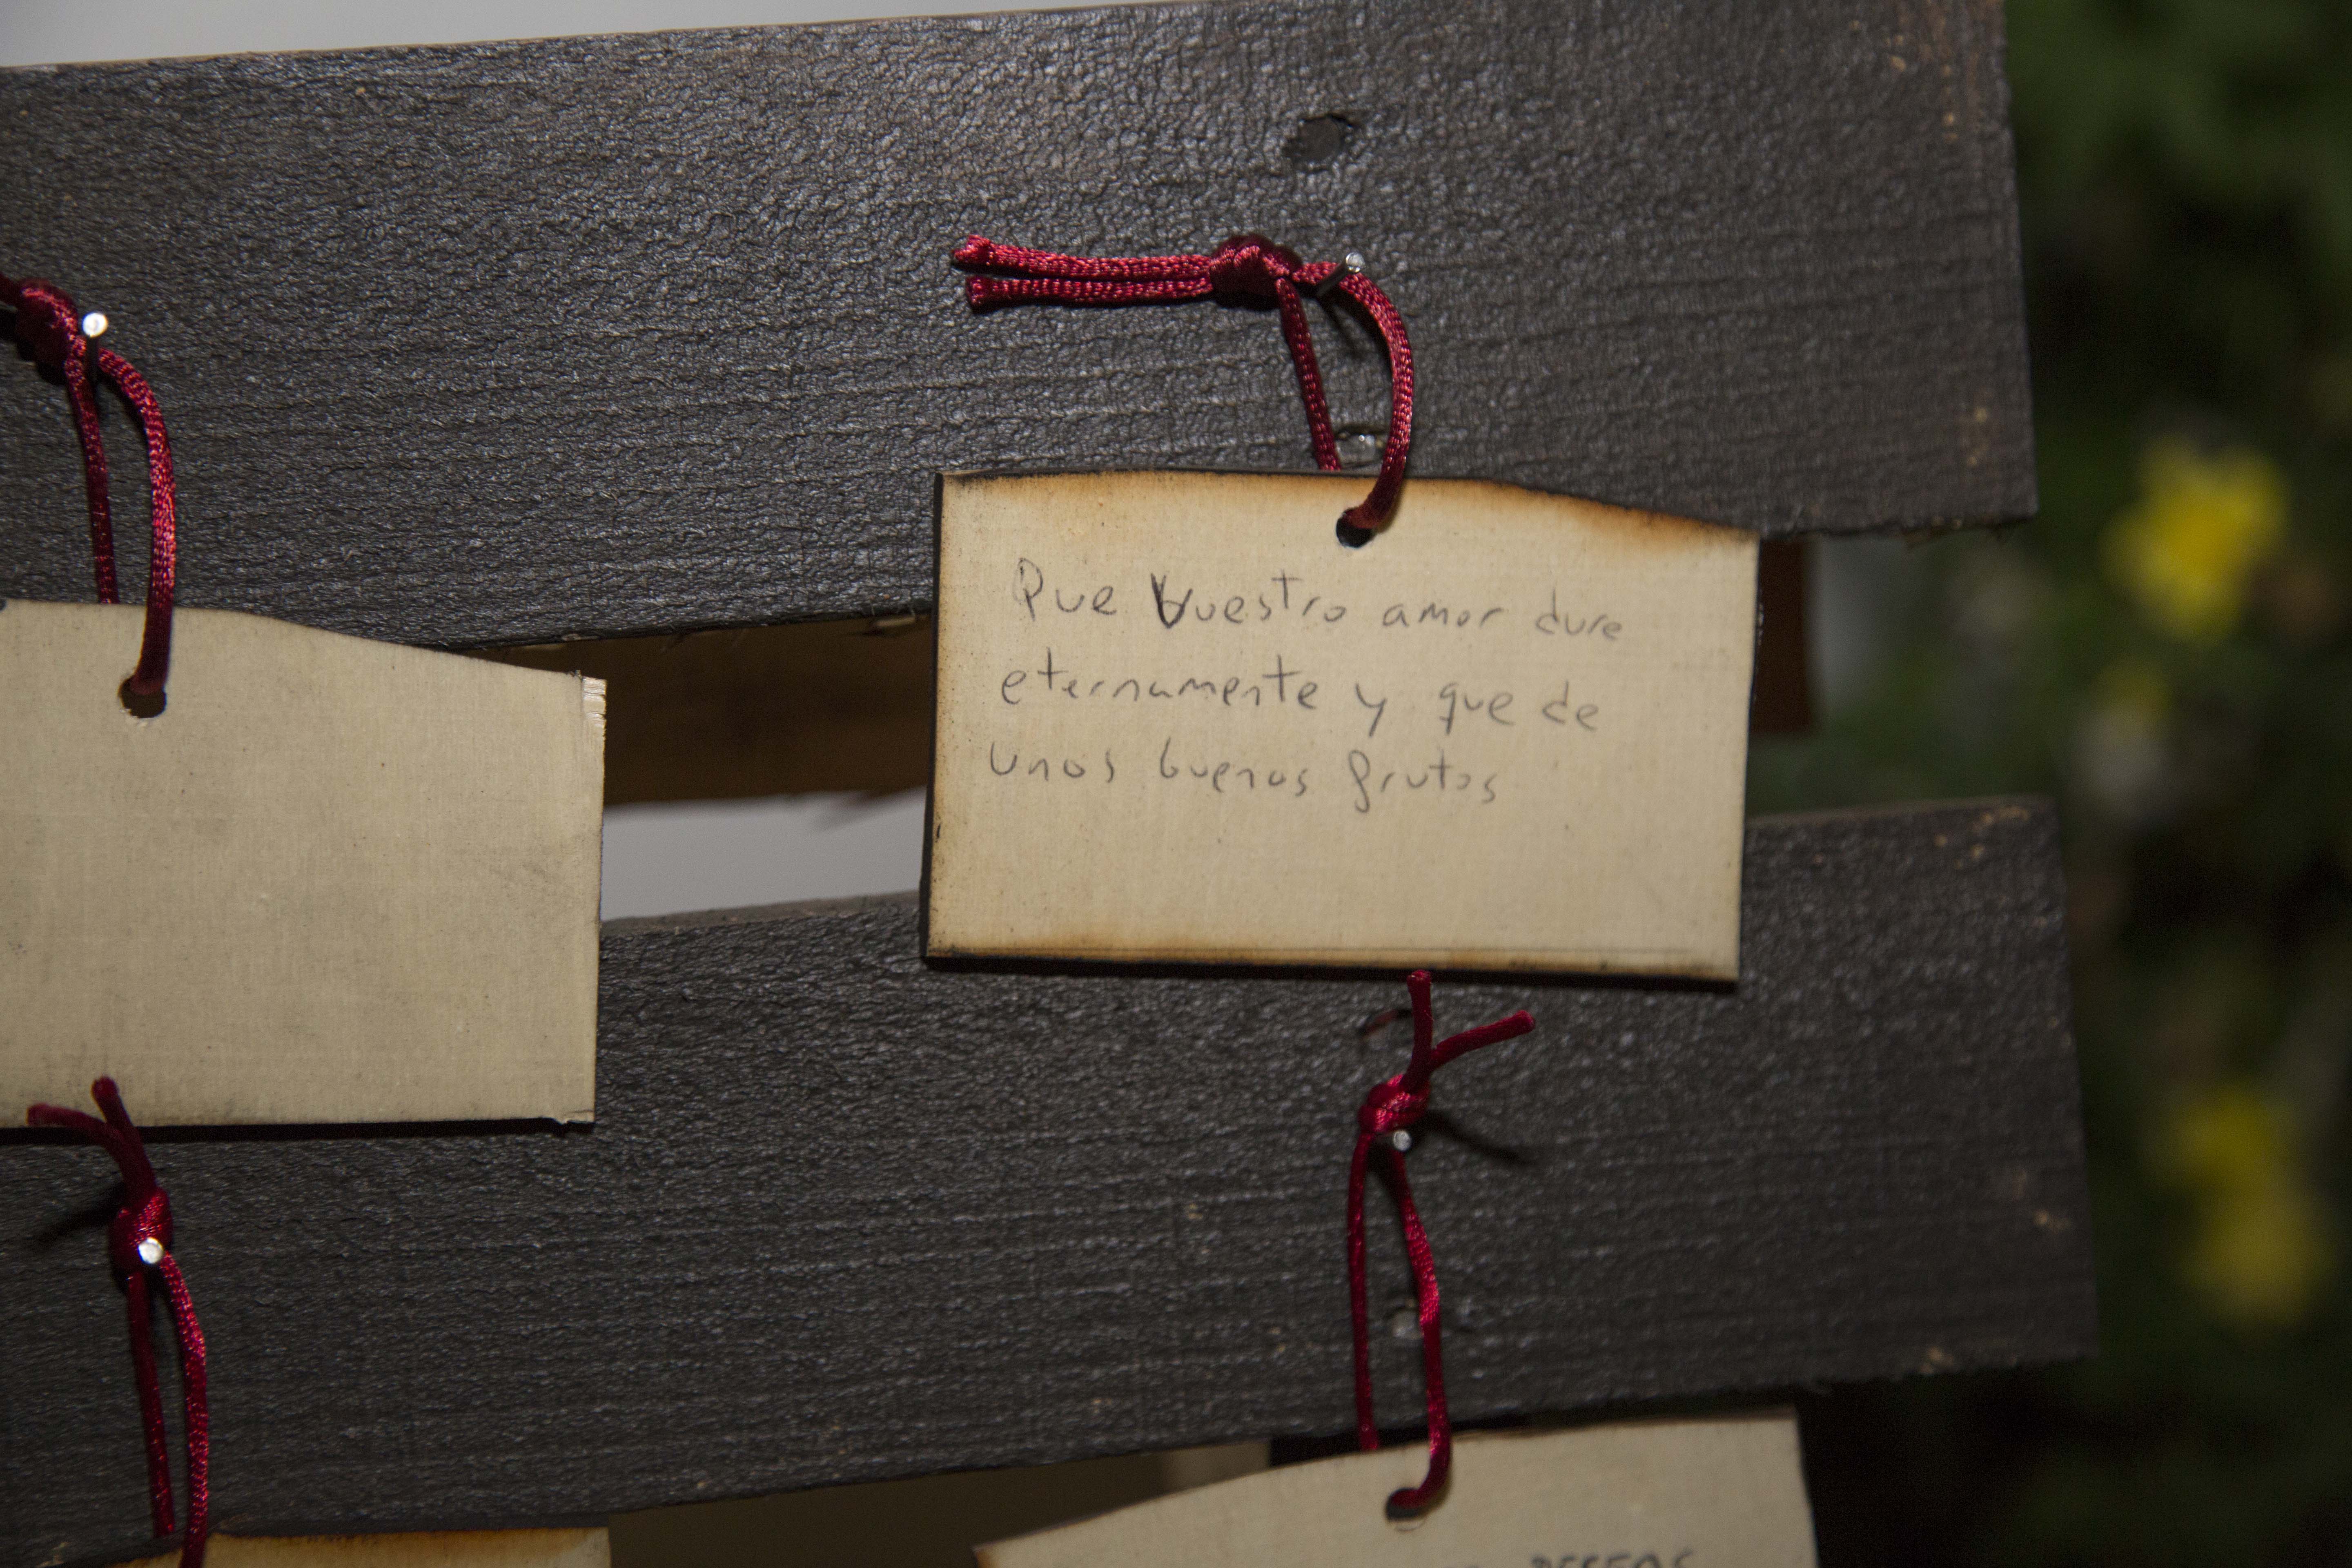 Que Vuestro amor dure
eternamente y que de
unos buenos frutos
DESEOS